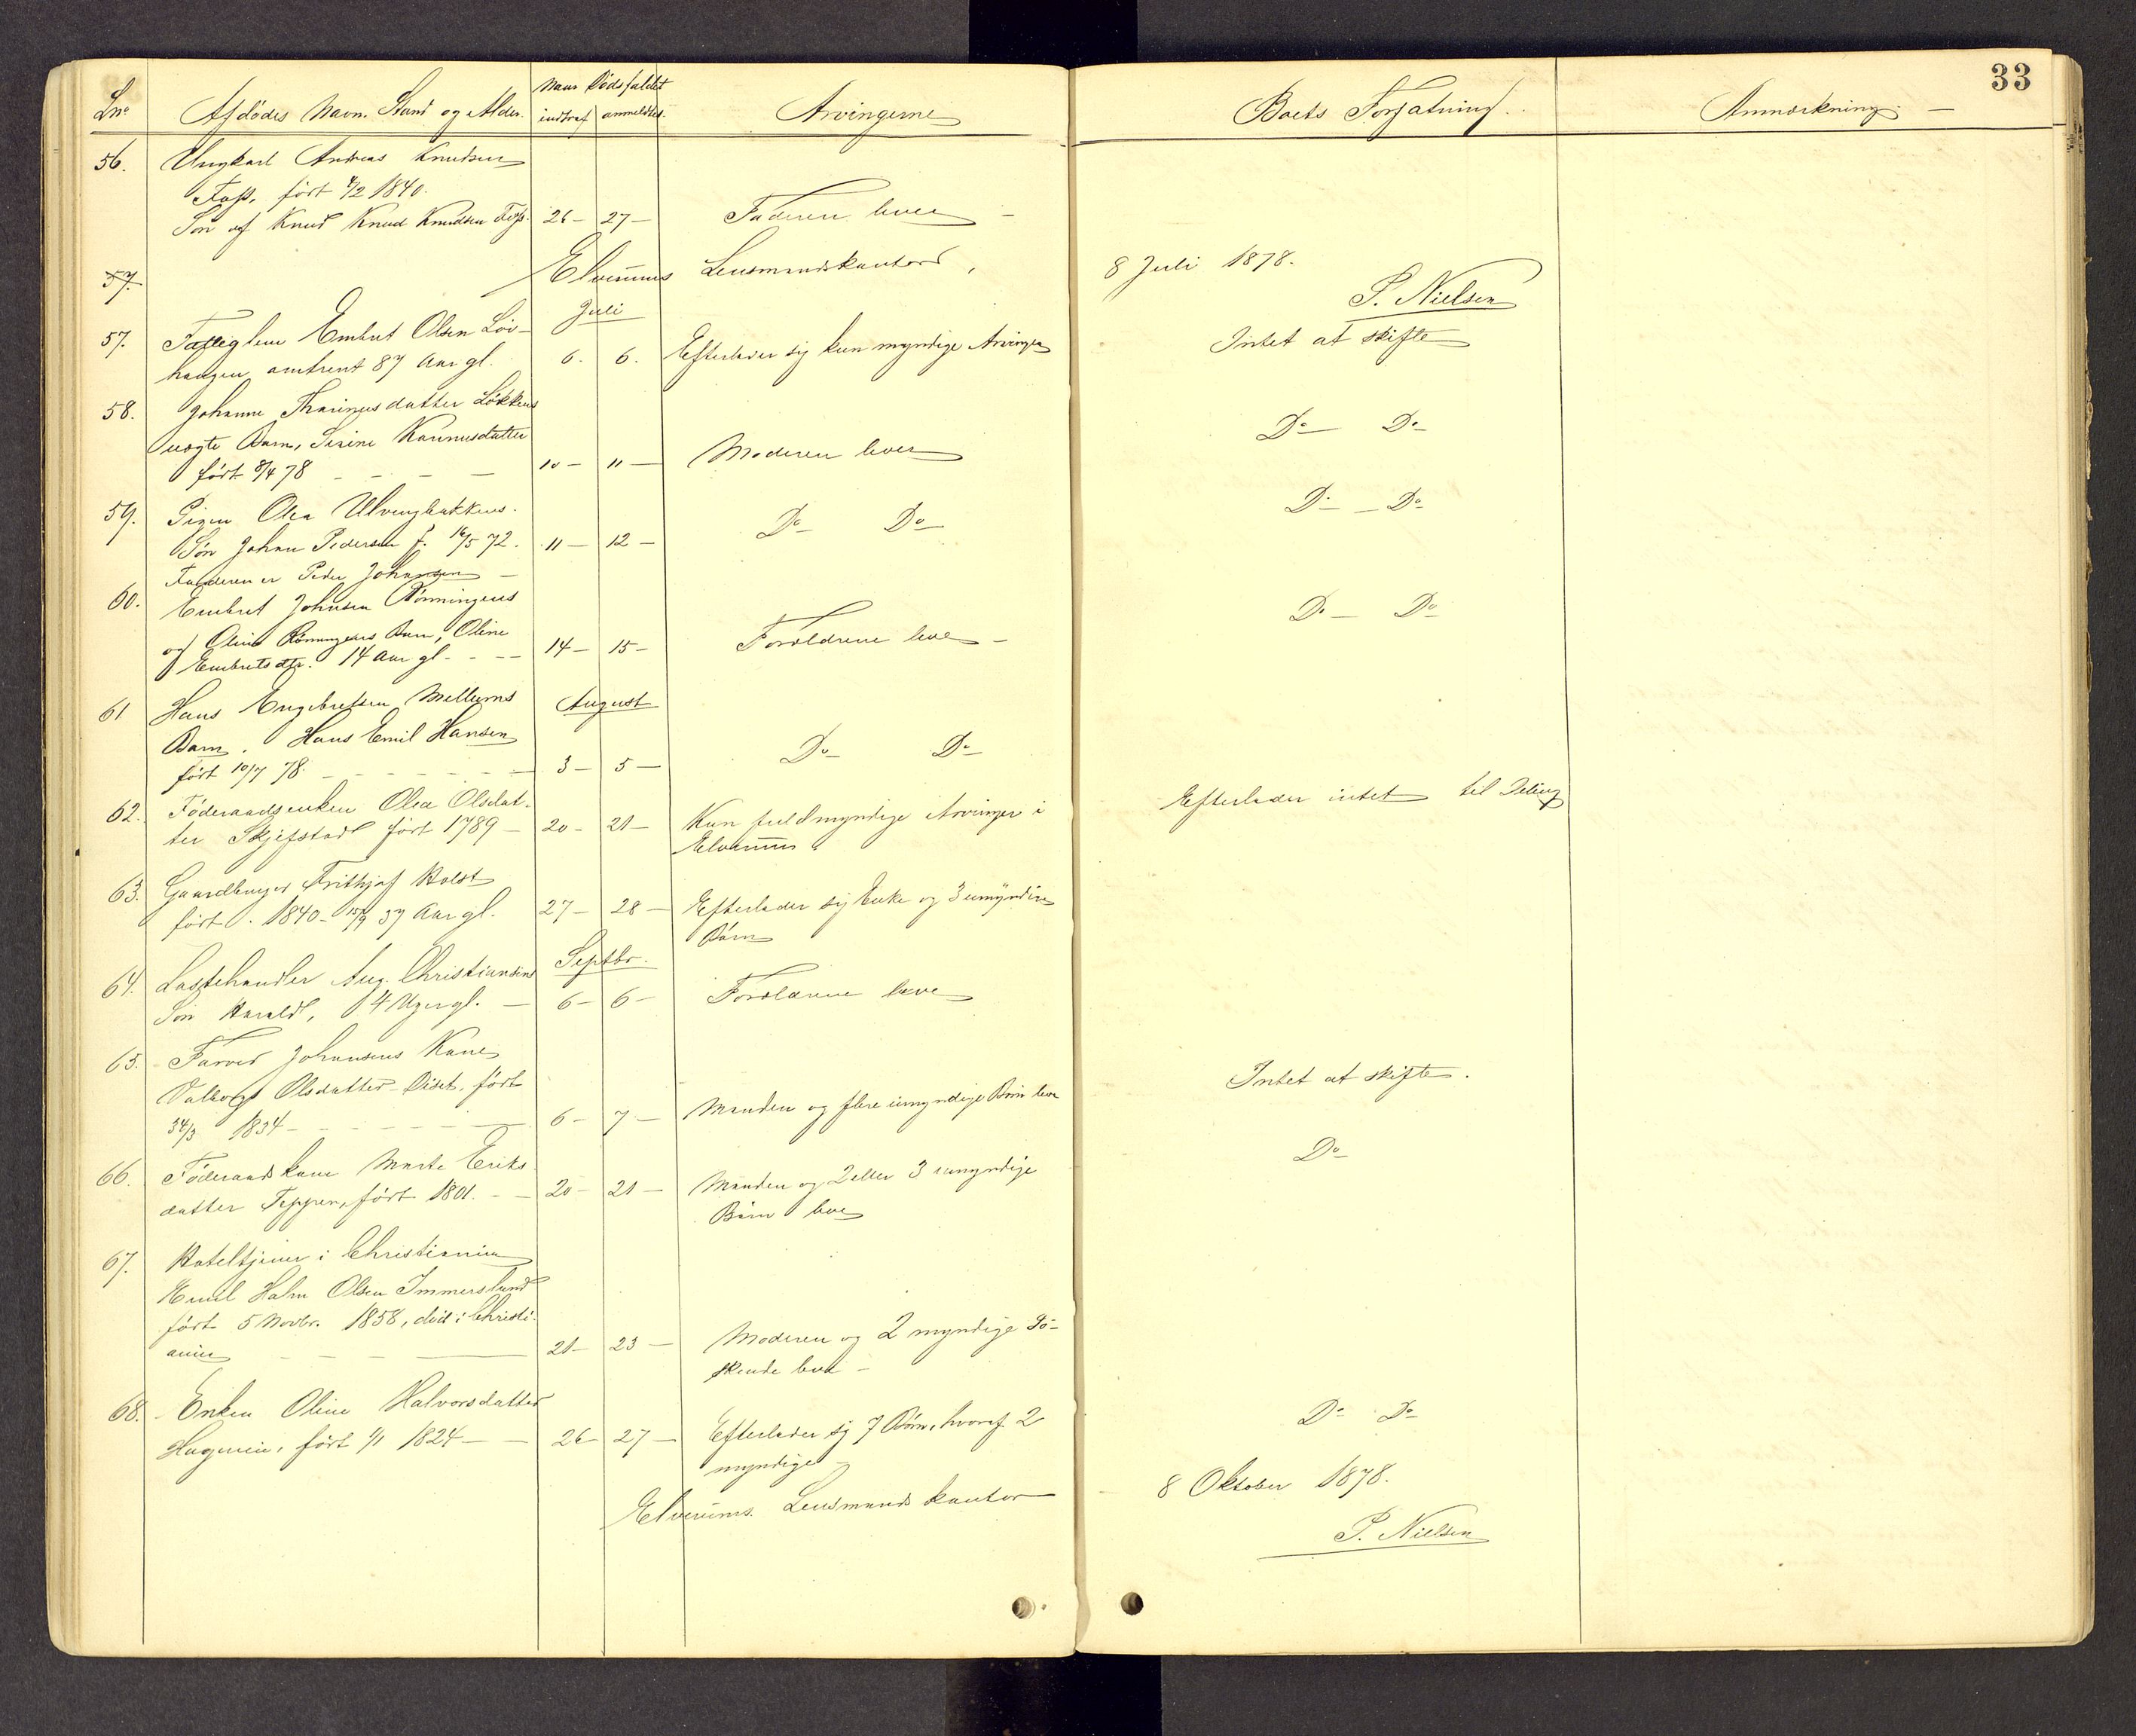 33
Lnº Afdødes Navn, Stand og Alder. Naar Dødsfaldet indtraf anmeldtes. Arvingerne Boets Forfatning. Anmærkning. —
56. Ungkarl Andreas Knudsen
født 4/2 1840.
Søn af Knud Knud Knudsen 26 — 27 — Faderen lever —
57. Elverums Lensmandskontor, 8 Juli 1878.
S. Nielsen
Juli
57. Embret Olsen Løv-
haugen omtrent 87 Aar gl. 6. 6. Efterlader sig kun myndige Arvinger Intet at skifte
58. Johanne Thorinusdatter Løkkens
uægte Barn, Sirine Karinusdatter Do — Do
født 8/4 78 — — — 10 — 11 — Moderen lever
59. Pigen Olea Ulvengbakkens
Søn Johan Pedersen f. 16/5 72. 11 — 12 — Do Do Do — Do
Faderen er Peder Johansen —
60. Embret Johnsen Rønningens
og Oline Rønningens Barn, Oline Do — Do
Embretsdtr. 14 Aar gl. — — 14 — 15 — Forældrene leve —
August
61 Hans Engebretsen Mellums
Barn. Hans Emil Hansen
født 10/7 78. — — — 3 — 5 — Do Do
62. Føderaadsenken Olea Olsdat-
ter Skjefstad født 1789 — 20 — 21 — Kun fuldmyndige Arvinger i Efterlader intet til Deling
Elverum
63. Gaardbruger Frithjof Holst
født 1840 — 15/9 37 Aar gl. 27 — 28 — Efterlader sig Enke og 3 umyndige
Børn
Septbr.
64. Lastehandler Aug. Christiansens
Søn Harald, 4 Uger gl. — 6 — 6 — Forældrene leve
65. Farver Johansens Kone
Valborg Olsdatter Diset, født Intet at skifte.
1834 — — — 6 — 7 — Manden og flere umyndige Børn leve
66. Føderaadskone Marte Eriks-
datter Teppen, født 1801. — — 20 — 21 — Manden og 2 eller 3 umyndige Do
Børn leve
67. Hoteltjener i Christiania
Emil Halm Olsen Immerslund
født 5 Novbr. 1858, død i Christi-
ania — — — 21 — 23 — Moderen og 2 myndige Sø-
skende leve —
68. Enken Oline Halvorsdatter
født 1/1 1824 — — 26 — 27 — Efterlader sig 7 Børn, hvoraf 2 Do Do
myndige —
Elverums Lensmandskontor 8 Oktober 1878.
P. Nielsen